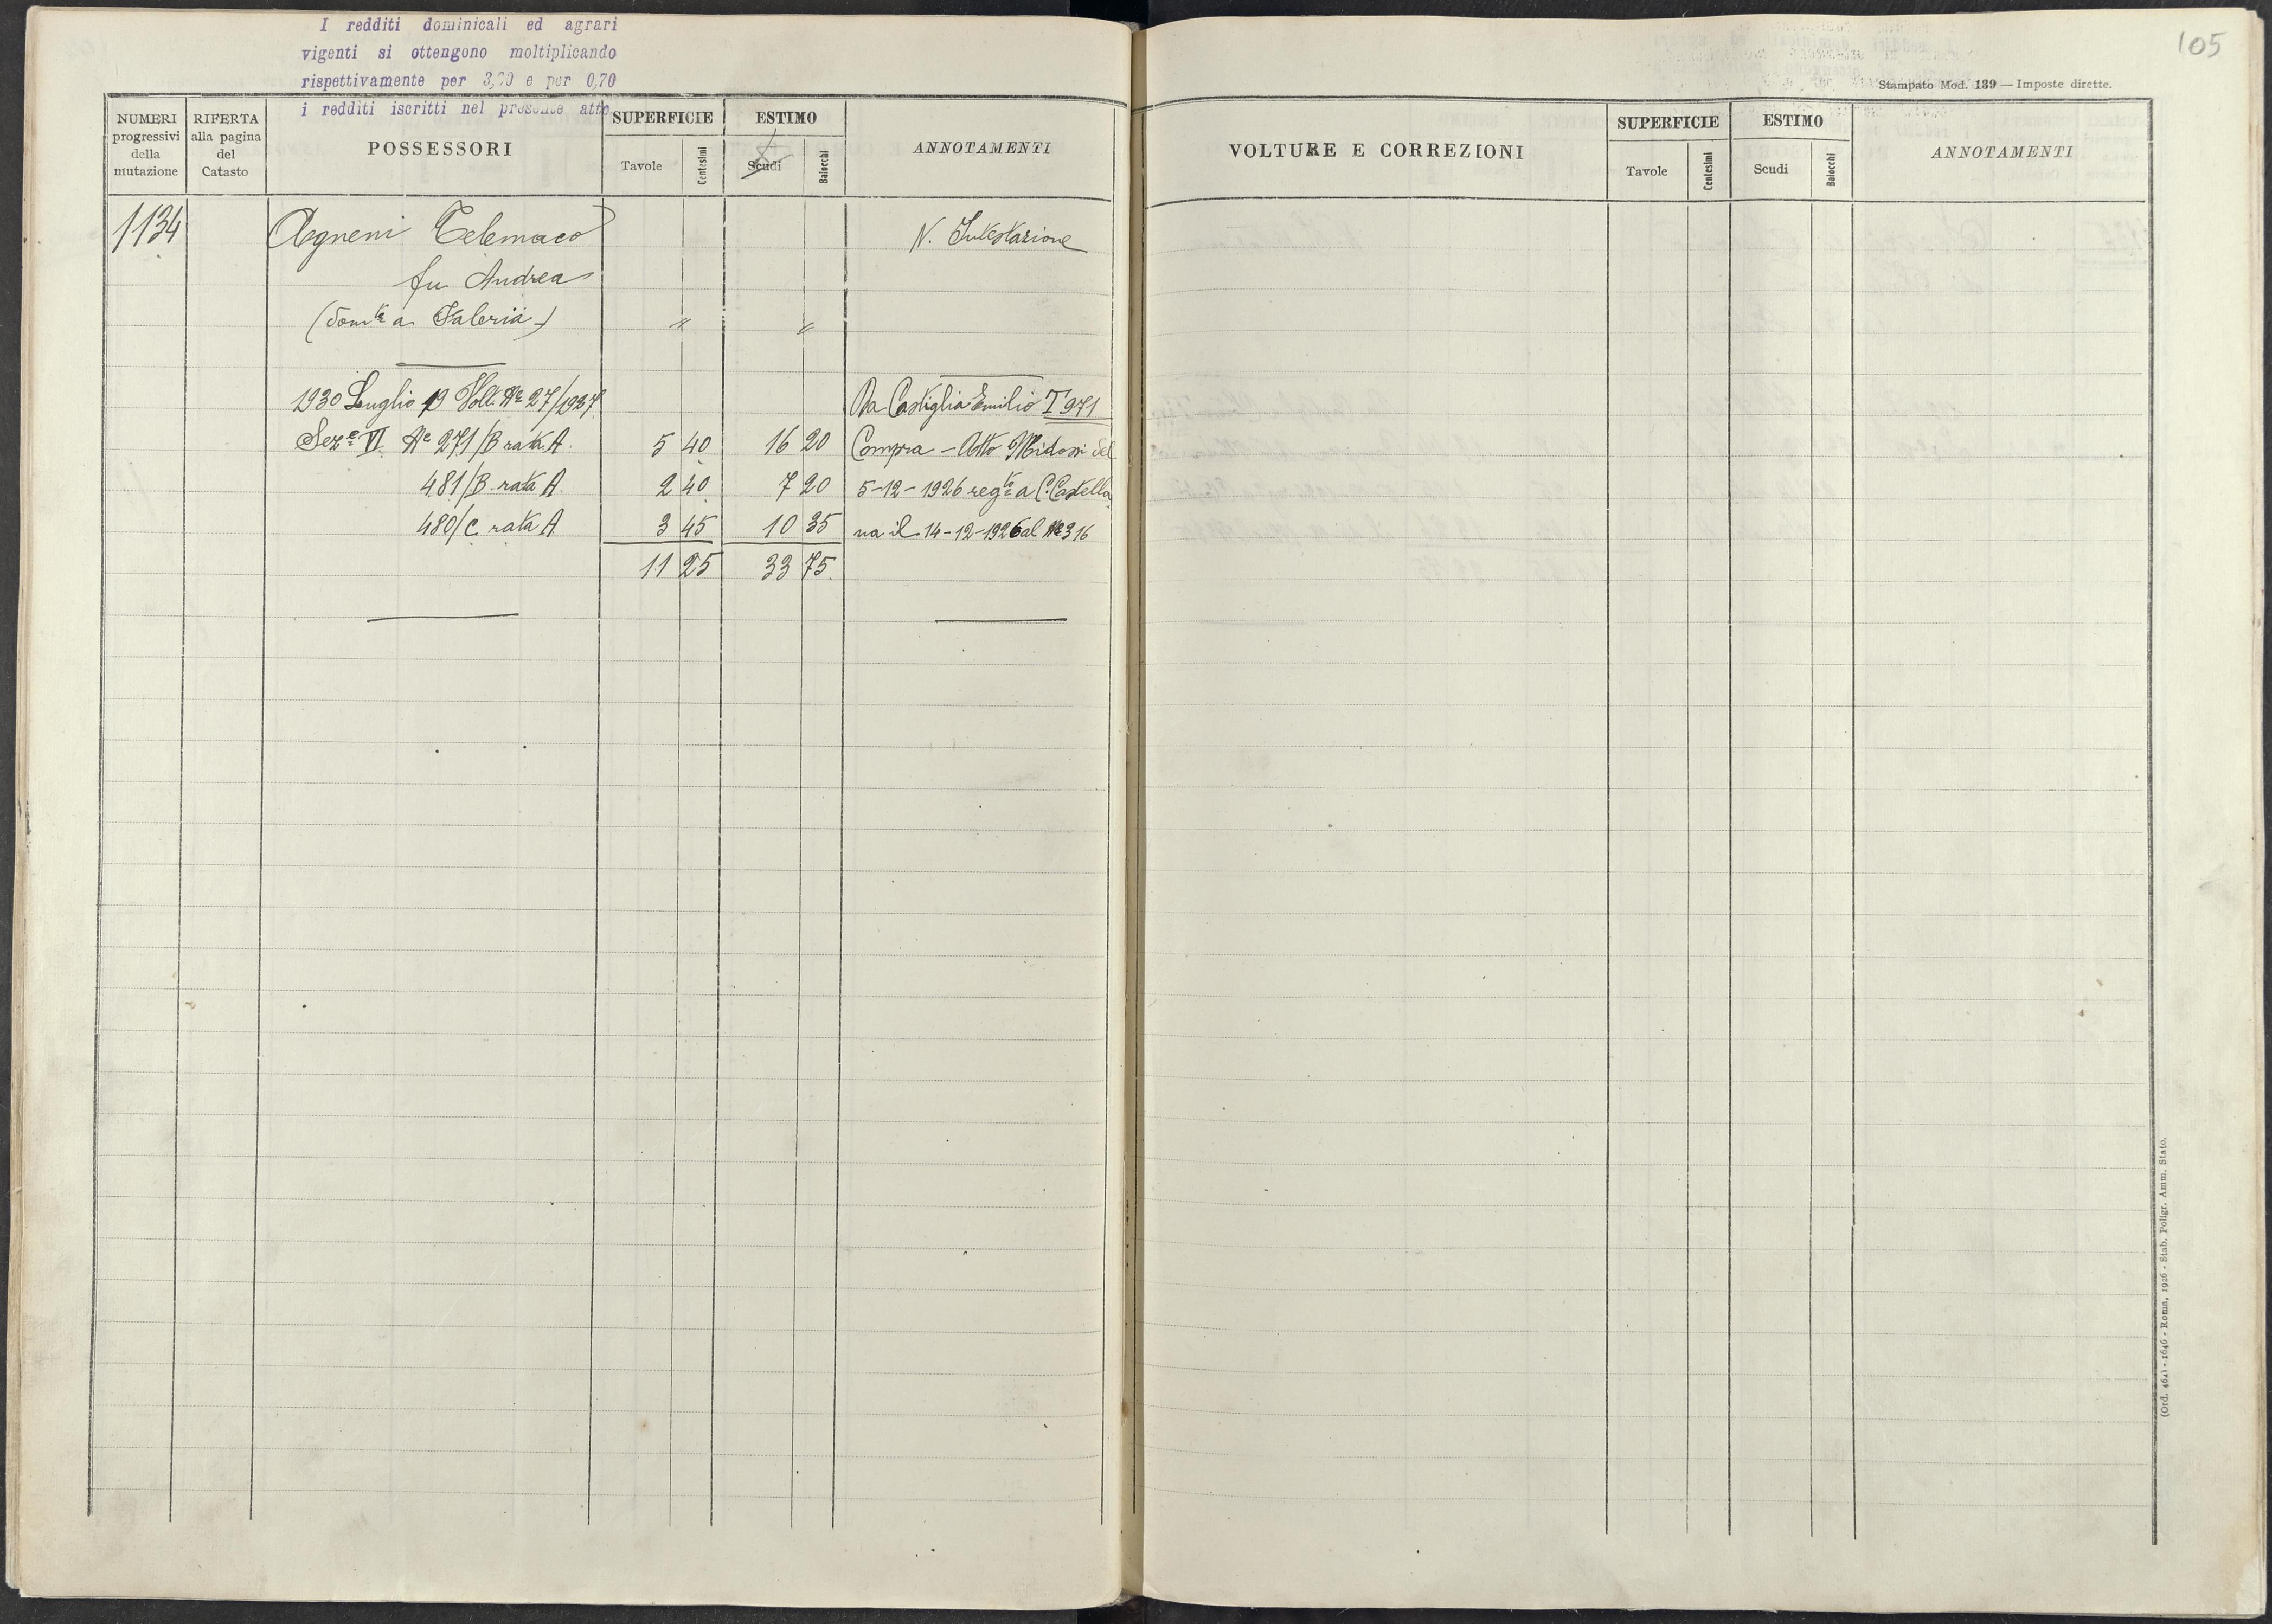 I redditi dominicali ed agrari
vigenti si ottengono moltiplicando
rispettivamente per 3,20 e per 0,70
i redditi iscritti nel presente atto
NUMERI progressivi della mutazione
RIFERTA alla pagina del Catasto
POSSESSORI
SUPERFICIE
Tavole Centesimi
ESTIMO
Scudi Baiocchi
ANNOTAMENTI
1134 Agneni Telemaco N. Intestazione
fu Andrea
(dom.to a Faleria) " "
1930 Luglio 19 Volt. No 27/1927 Da Castiglia Emilio T 971
Seze VI No 271/B rata A. 5 40 16 20 Compra - Atto Midossi del
481/B rata A. 2 40 7 20 5-12-1926 reg.to a C. Castella
480/C rata A 3 45 10 35 na il 14-12-1926 al No 316
11 25 33 75
105
Stampato Mod. 139 — Imposte dirette.
VOLTURE E CORREZIONI
SUPERFICIE
Tavole Centesimi
ESTIMO
Scudi Baiocchi
ANNOTAMENTI
(Ord. 4641 - 1646 - Roma, 1926 - Stab. Poligr. Amm. Stato.